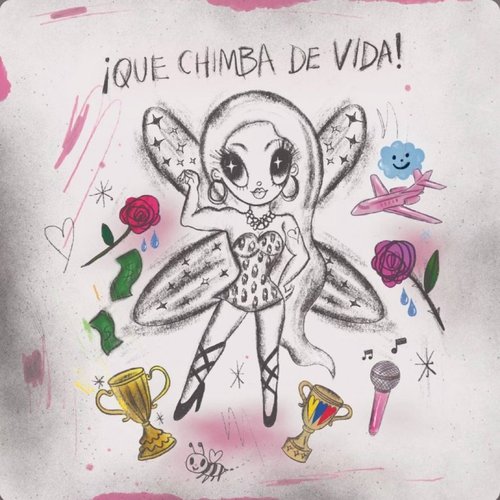 ¡QUE CHIMBA DE VIDA!